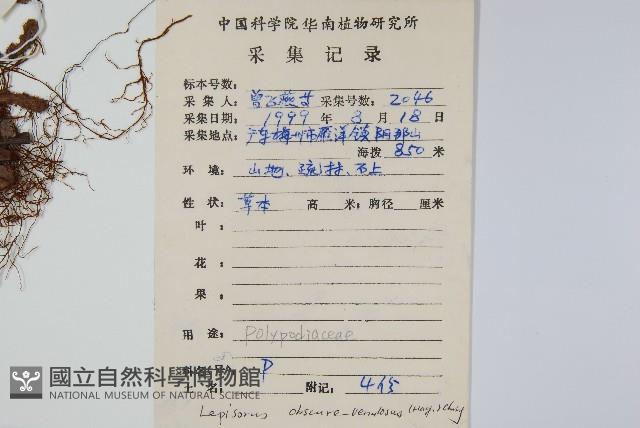 中国科学院华南植物研究所
采集记录
标本号数:
采集人: 曾飞燕等 采集号数: 2046
采集日期: 1999 年 8 月 18 日
采集地点: 广东梅州市雁洋镇阴那山
海拨 850 米
环境: 山地、疏林、石上
性状: 草本 高 米; 胸径 厘米
叶:
花:
果:
用途: Polypodiaceae
P
土名: 附记: 4份
國立自然科學博物館
NATIONAL MUSEUM OF NATURAL SCIENCE
Lepisorus obscure-venulosus (Hay.) Ching